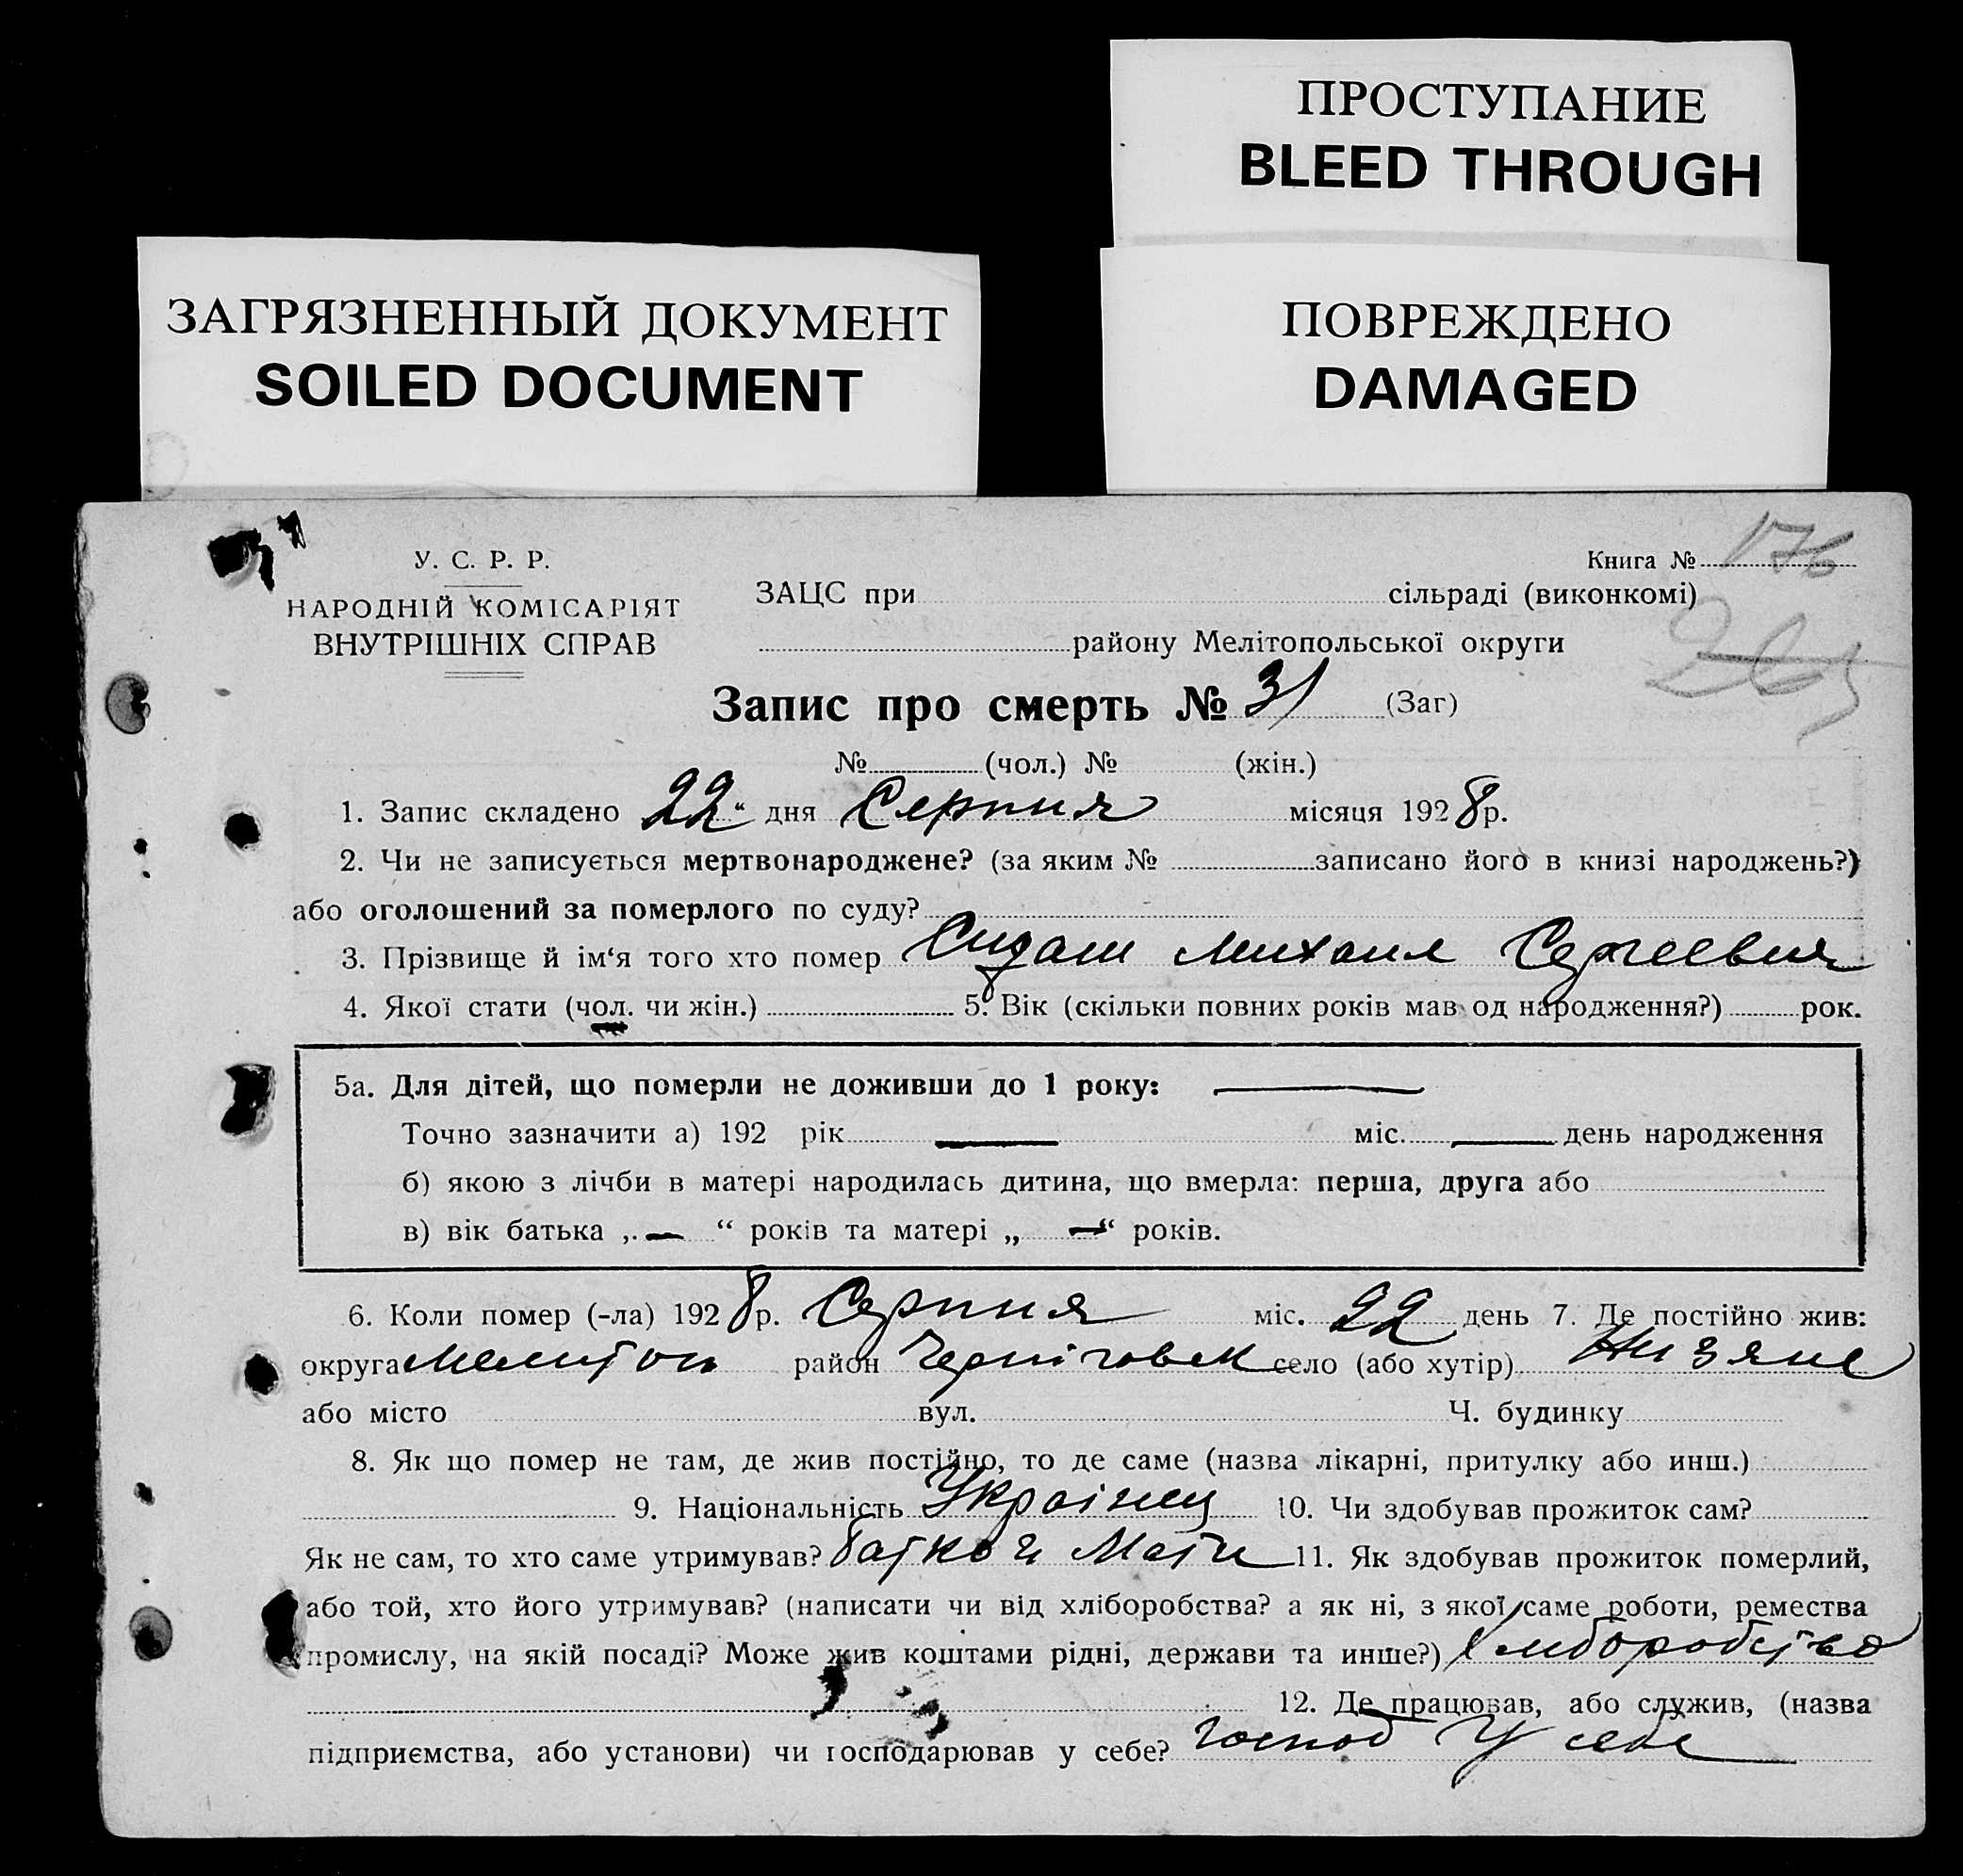 ПРОСТУПАНИЕ
BLEED THROUGH
ЗАГРЯЗНЕННЫЙ ДОКУМЕНТ
SOILED DOCUMENT
ПОВРЕЖДЕНО
DAMAGED
У. С. Р. Р.
НАРОДНІЙ КОМІСАРІЯТ
ВНУТРІШНІХ СПРАВ
Книга № 176
ЗАЦС при сільраді (виконкомі)
району Мелітопольської округи
265
Запис про смерть № 31 (Заг)
№ (чол.) № (жін.)
1. Запис складено 22 “ дня Серпня місяця 1928 р.
2. Чи не записується мертвонароджене? (за яким № записано його в книзі народжень?)
або оголошений за померлого по суду?
3. Прізвище й ім‘я того хто помер Михаил
4. Якої стати (чол. чи жін.) 5. Вік (скільки повних років мав од народження?) рок.
5а. Для дітей, що померли не доживши до 1 року: —
Точно зазначити а) 192 рік — міс. — день народження
б) якою з лічби в матері народилась дитина, що вмерла: перша, друга або
в) вік батька „ — “ років та матері „ — “ років.
6. Коли помер (-ла) 1928 р. Серпня міс. 22 день 7. Де постійно жив:
округа Мелитоп район Чернiговск село (або хутір)
або місто вул. Ч. будинку
8. Як що помер не там, де жив постійно, то де саме (назва лікарні, притулку або инш.)
9. Національність Українец 10. Чи здобував прожиток сам?
Як не сам, то хто саме утримував? батко и Мати 11. Як здобував прожиток померлий,
або той, хто його утримував? (написати чи від хліборобства? а як ні, з якої саме роботи, ремества
промислу, на якій посаді? Може жив коштами рідні, держави та инше?) Хлиборобство
12. Де працював, або служив, (назва
підприємства, або установи) чи господарював у себе? господ У себе